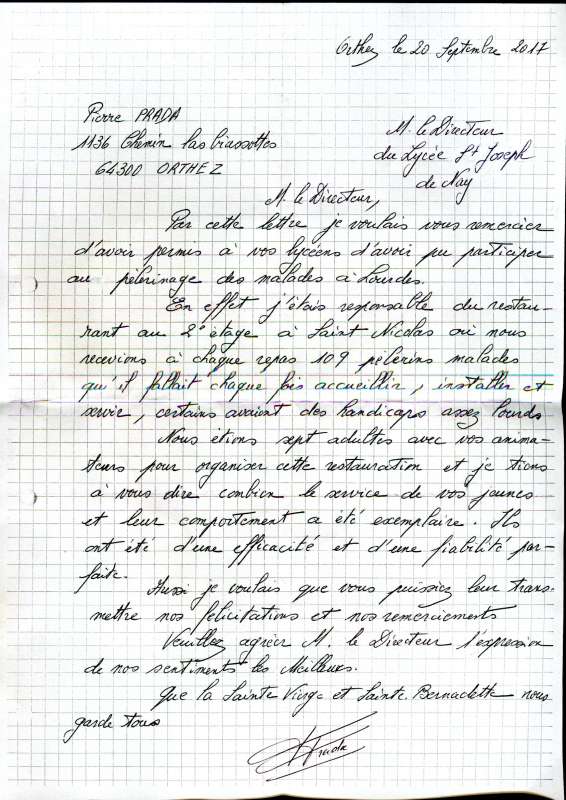 Orthez le 20 Septembre 2017
Pierre PRADA
1136 Chemin las biassottes
64300 ORTHEZ
M. le Directeur
du Lycée St Joseph
de Nay
M. le Directeur,
Par cette lettre je voulais vous remercier
d'avoir permis à vos lycéens d'avoir pu participer
au pèlerinage des malades à Lourdes.
En effet j'étais responsable du restau-
rant au 2e étage à Saint Nicolas où nous
recevions à chaque repas 109 pèlerins malades
qu'il fallait chaque fois accueillir, installer et
servir, certains avaient des handicaps assez lourds
Nous étions sept adultes avec vos anima-
teurs pour organiser cette restauration et je tiens
à vous dire combien le service de vos jeunes
et leur comportement a été exemplaire. Ils
ont été d'une efficacité et d'une fiabilité par-
faite.
Aussi je voulais que vous puissiez leur trans-
mettre nos félicitations et nos remerciements
Veuillez agréer M. le Directeur l'expression
de nos sentiments les Meilleurs.
Que la Sainte Vierge et Sainte Bernadette nous
garde tous
Prada